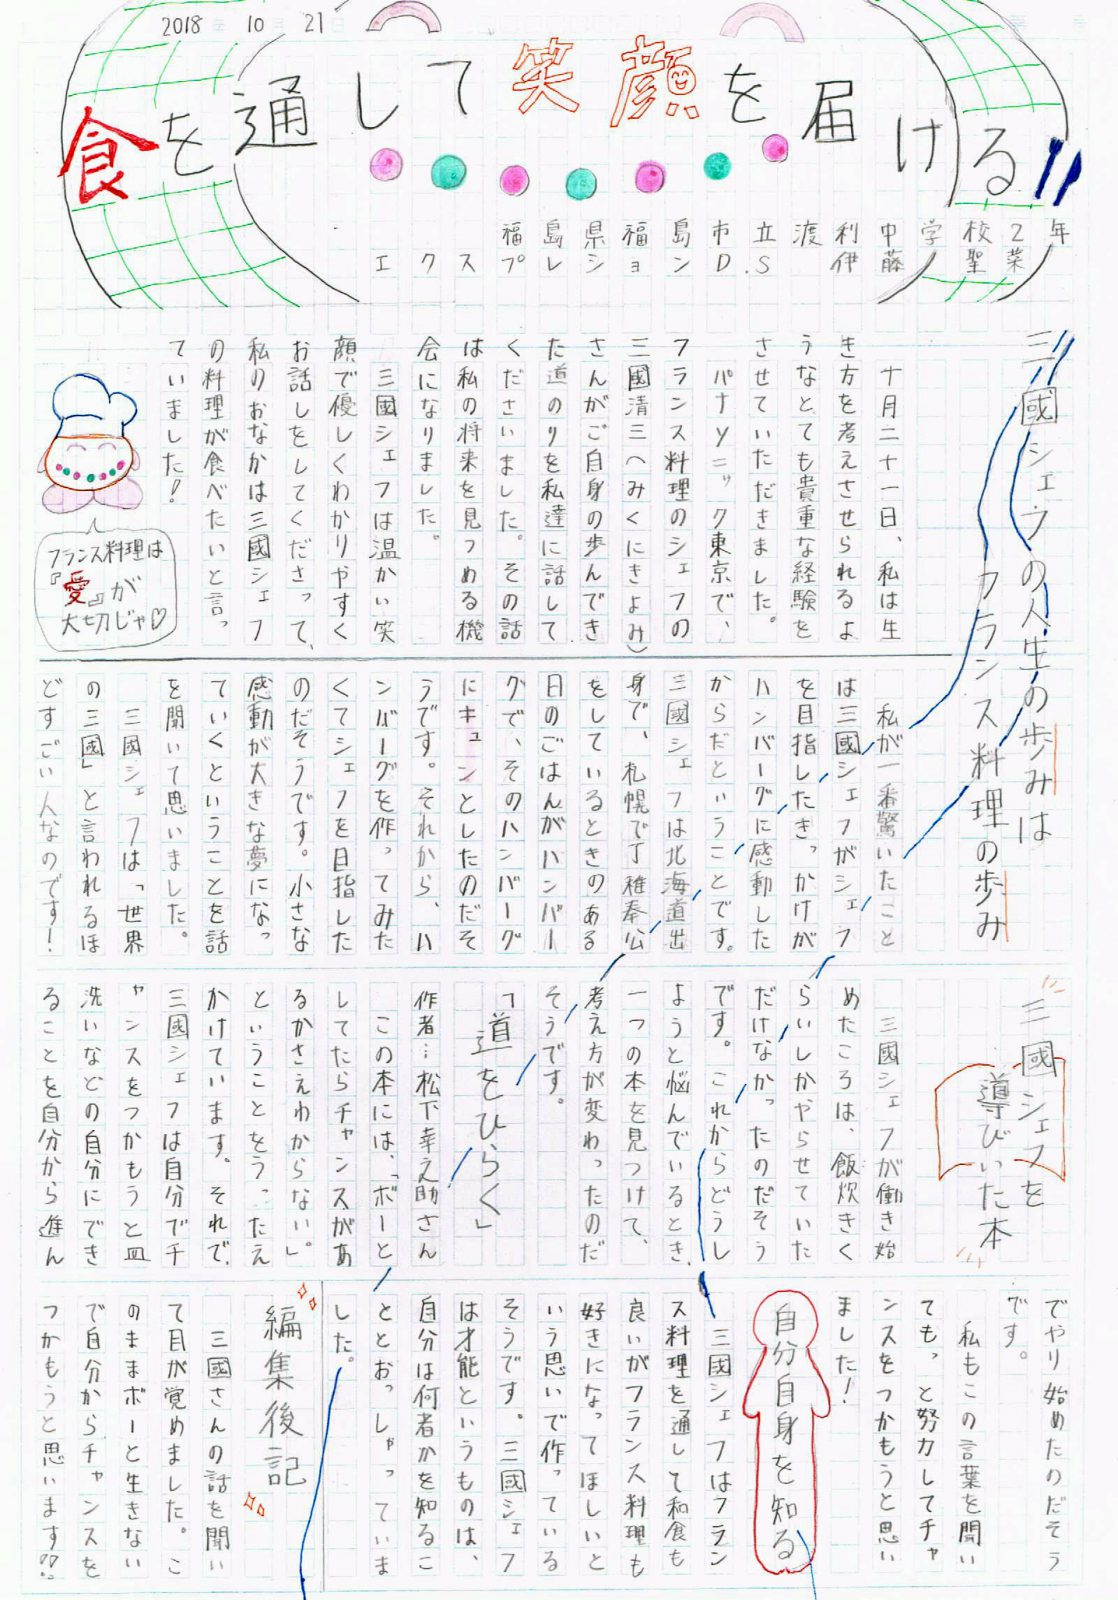 2018年10月21日
食を通して笑顔を届ける
福島県福島市立渡利中学校2年
エクスプレションD.S 伊藤聖菜
三國シェフの人生の歩みは
フランス料理の歩み
十月二十一日、私は生
き方を考えさせられるよ
うなとても貴重な経験を
させていただきました。
パナソニック東京で、
フランス料理のシェフの
三國清三(みくにきよみ)
さんがご自身の歩んでき
た道のりを私達に話して
くださいました。その話
は私の将来を見つめる機
会になりました。
三國シェフは温かい笑
顔で優しくわかりやすく
お話しをしてくださって、
私のおなかは三國シェフ
の料理が食べたいと言っ
ていました!
フランス料理は
『愛』が
大切じゃ♡
私が一番驚いたこと
は三國シェフがシェフ
を目指したきっかけが
ハンバーグに感動した
からだということです。
三國シェフは北海道出
身で、札幌で丁稚奉公
をしているときのある
日のごはんがハンバー
グで、そのハンバーグ
にキュンとしたのだそ
うです。それから、ハ
ンバーグを作ってみた
くてシェフを目指した
のだそうです。小さな
感動が大きな夢になっ
ていくということを話
を聞いて思いました。
三國シェフは「世界
の三國」と言われるほ
どすごい人なのです!
三國シェフを
導びいた本
三國シェフが働き始
めたころは、飯炊きく
らいしかやらせていた
だけなかったのだそう
です。これからどうし
ようと悩んでいるとき、
一つの本を見つけて、
考え方が変わったのだ
そうです。
「道をひらく」
作者:松下幸之助さん
この本には、「ボーと
してたらチャンスがあ
るかさえわからない」
ということをうったえ
かけています。それで、
三國シェフは自分でチ
ャンスをつかもうと皿
洗いなどの自分にでき
ることを自分から進ん
でやり始めたのだそう
です。
私もこの言葉を聞い
てもっと努力してチャ
ンスをつかもうと思い
ました!
自分自身を知る
三國シェフはフラン
ス料理を通して和食も
良いがフランス料理も
好きになってほしいと
いう思いで作っている
そうです。三國シェフ
は才能というものは、
自分は何者かを知るこ
ととおっしゃっていま
した。
編集後記
三國さんの話を聞い
て目が覚めました。こ
のままボーと生きない
で自分からチャンスを
つかもうと思います!!